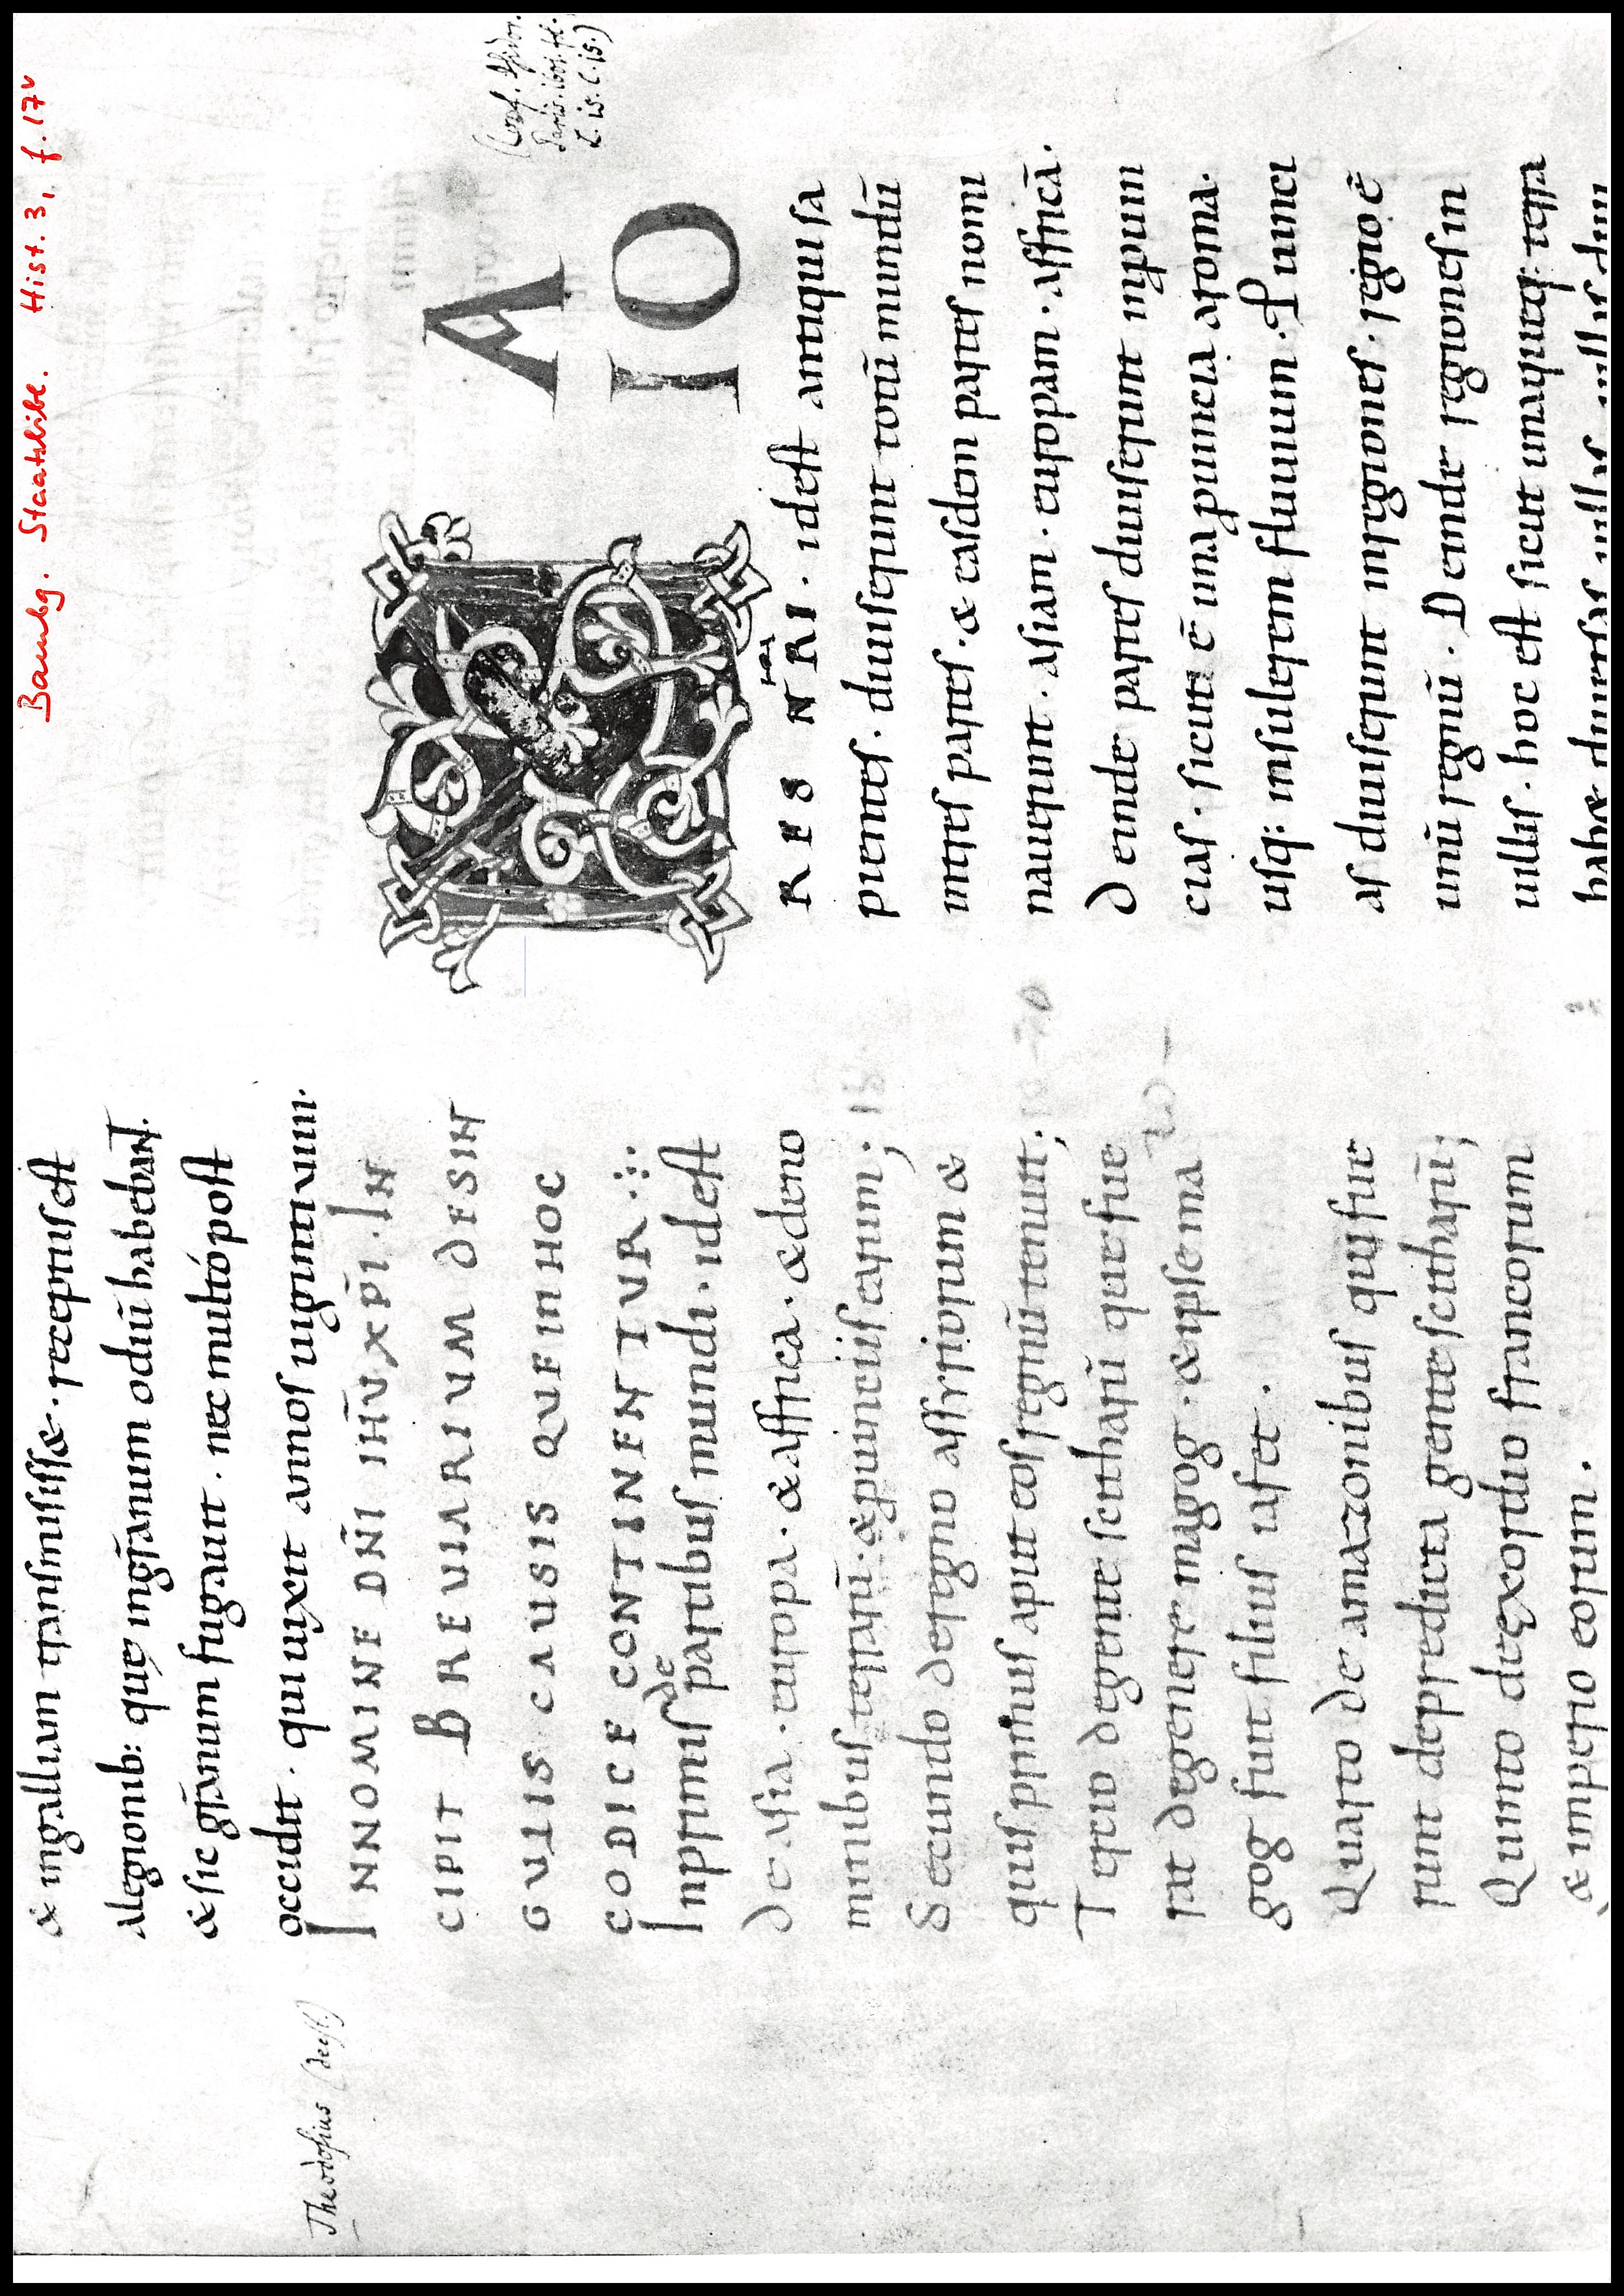 Bambg. Staatsbibl. Hist. 3, f. 17v
& ingalliam tranſmiſiſſ&. receptuſ eſt
alegionib: quę ingr̄anum odiū habebant.
& ſic gr̄anum fugauit. nec multó poſt
occidit. qui uixit annoſ uiginti viiii.
Theodoſius (deeſt)
INNOMINE DN̄I IH̄V XP̄I. IN
CIPIT BREVIARIVM DE SIN
GVLIS CAVSIS QVE IN HOC
CODICE CONTINENTVR
Inprimiſ de partibuſ mundi. id eſt
de aſia. europa. & affrica. & de no
minibuſ terrarū. & ꝓuinciiſ earum;
Secundo de regno aſſyriorum &
quiſ primuſ aput eoſ regnū tenuit;
Tercio de gente ſcitharū que fue
rat de genere magog. & ipſe ma
gog fuit filiuſ iafet.
Quarto de amazonibuſ quę fue
runt de predicta gente ſcitharū;
Quinto de exordio francorum
& imperio eorum.
(Conf. Iſidor.
A
IO
RES NRI. id eſt antiqui ſa
pienteſ. diuiſerunt totū mundū
in treſ parteſ. & eaſdem parteſ nomi
nauerunt. aſiam. europam. affricā.
Deinde parteſ diuiſerunt in ꝓuin
ciaſ. ſicuti ē una ꝓuincia a roma.
uſq: in ſulerem fluuium. Ꝓuinci
aſ diuiſerunt in regioneſ. regio ē
unū regnū. Deinde regioneſ in
uilliſ. hoc eſt ſicut unaquęq; terra
hab& diuerſaſ uillaſ